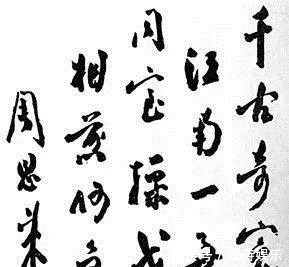 千古奇冤
江南一叶
同室操戈
相煎何急
周恩来
娱乐